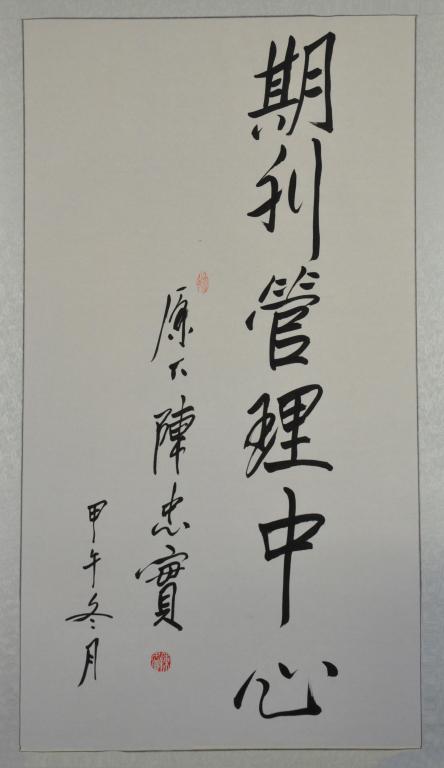 期刊管理中心
原下陳忠實
甲午冬月